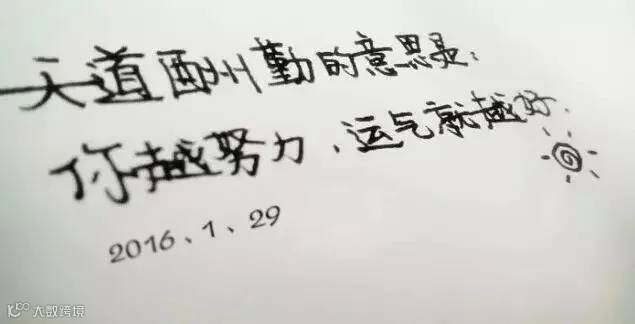 天道酬勤的意思是:
你越努力、运气就越好.
2016、1、29
大数跨境